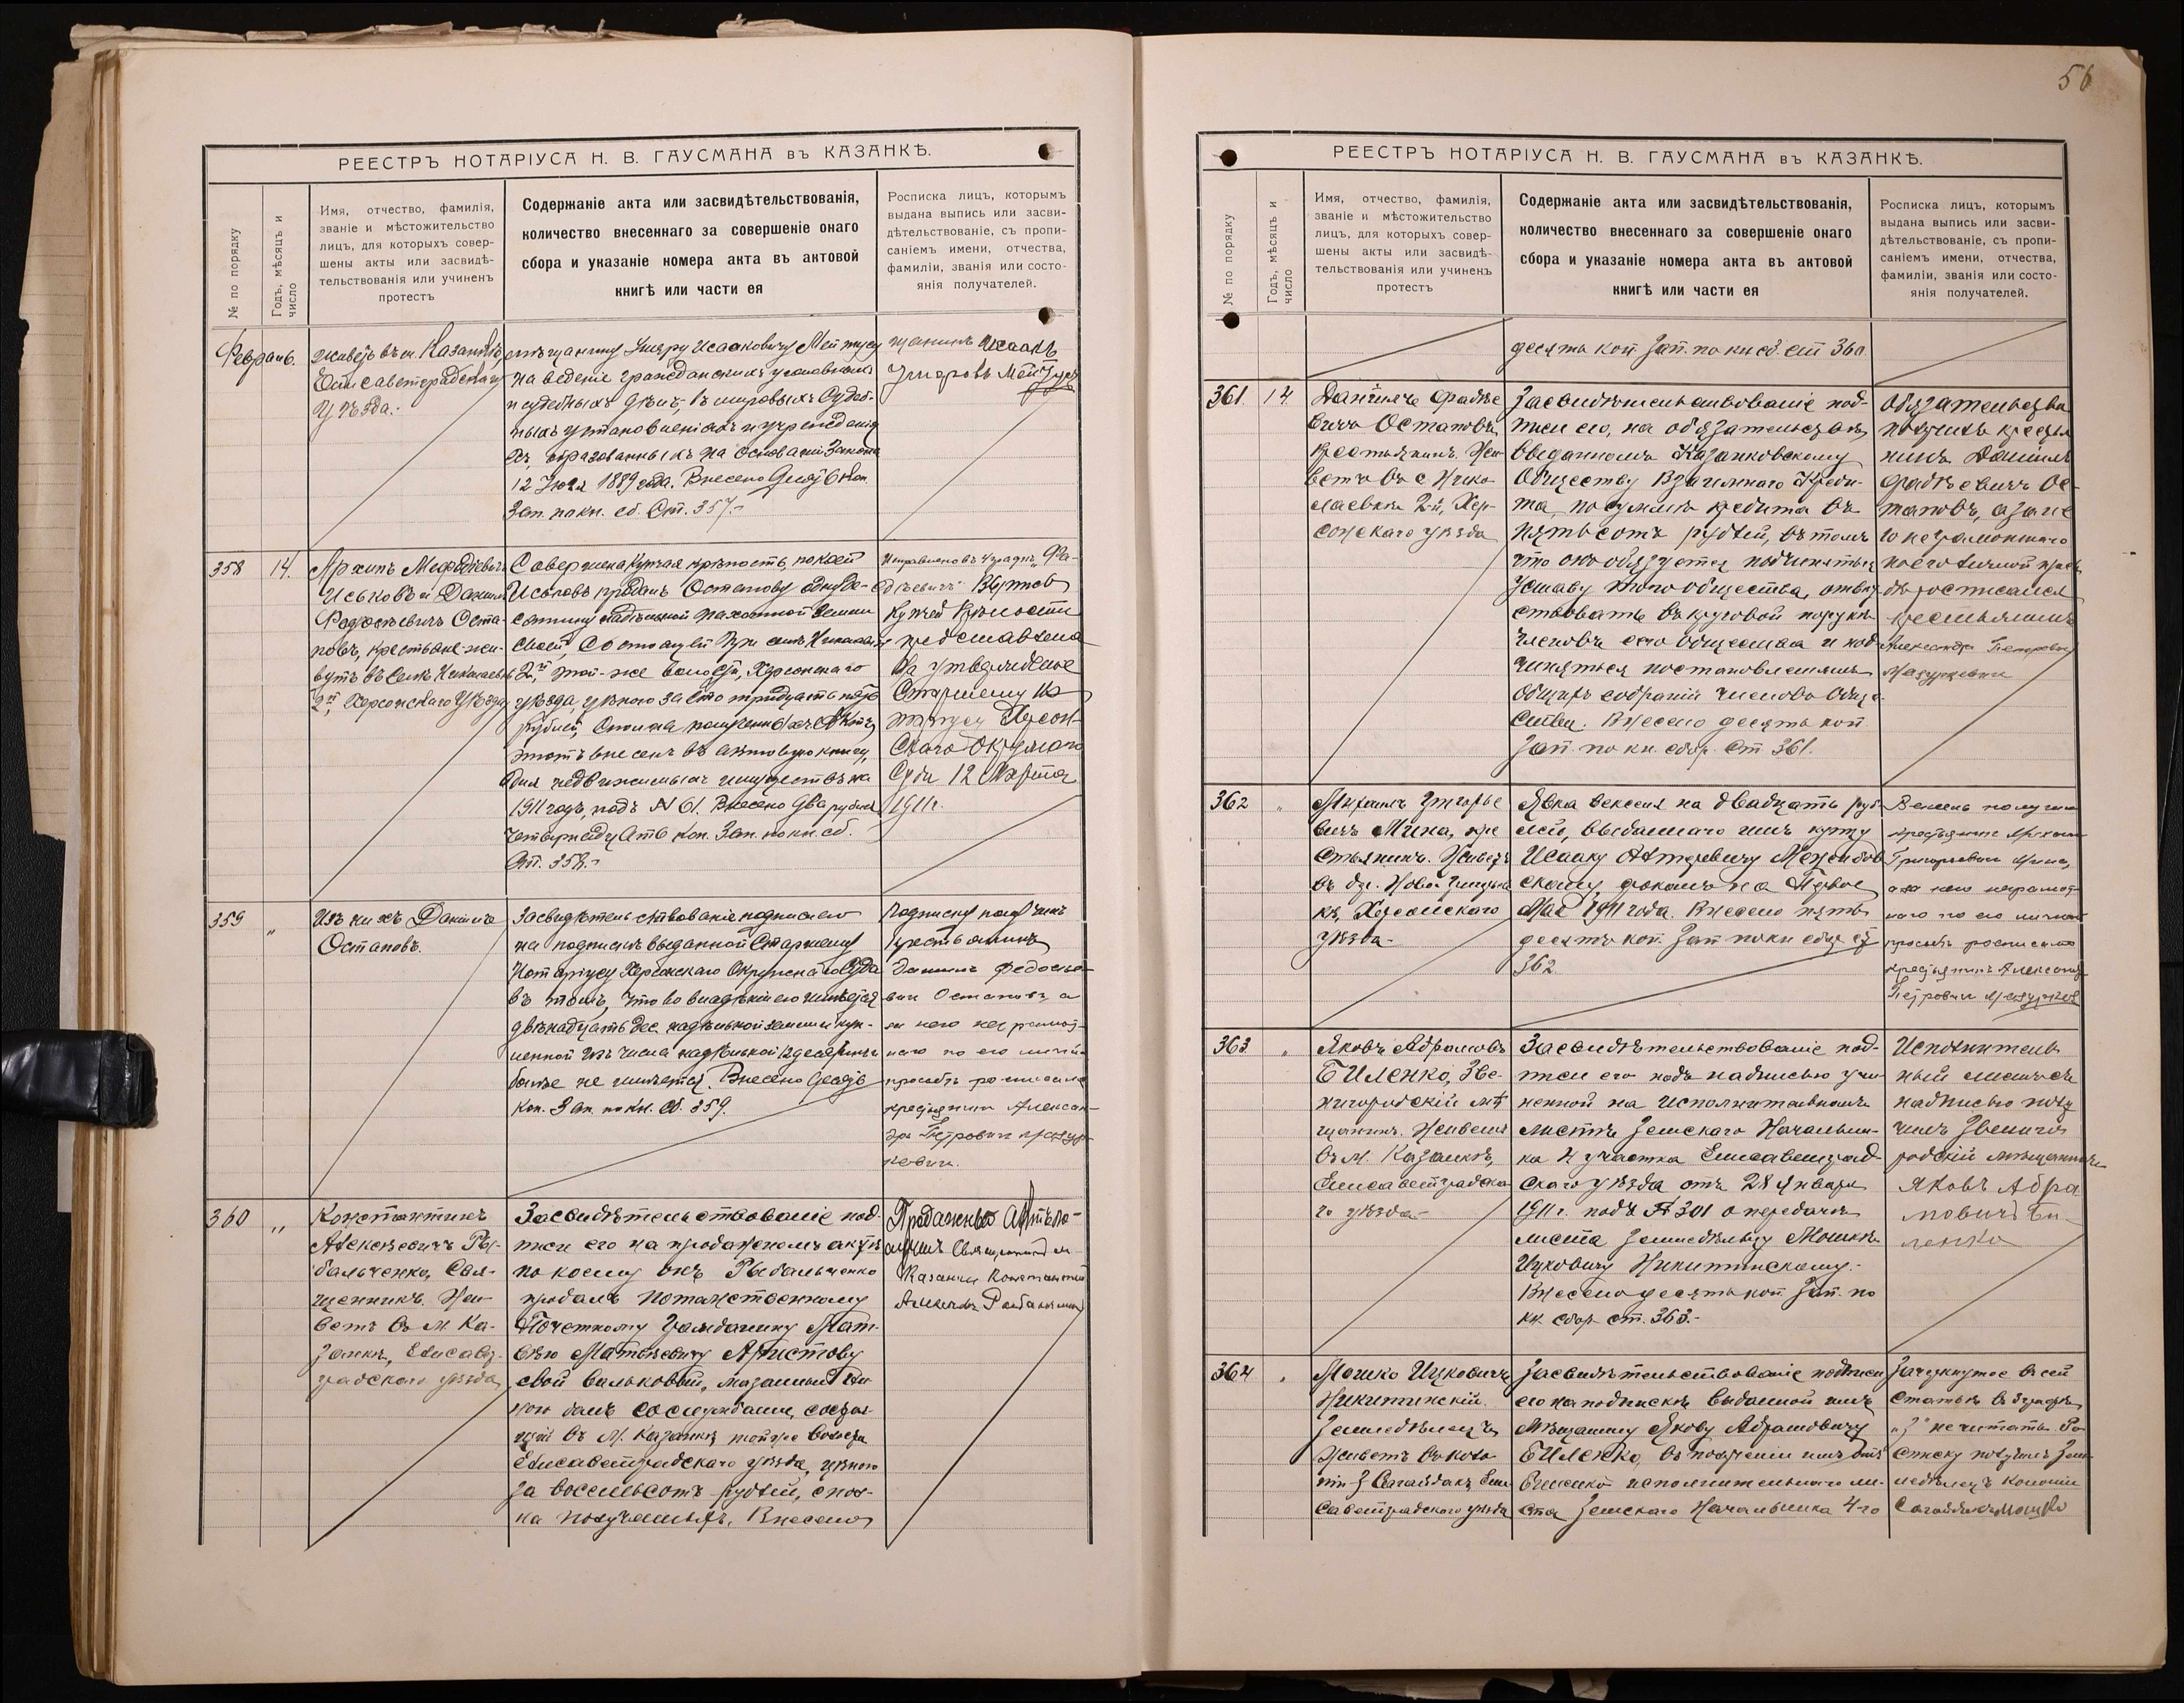 56
РЕЕСТРЪ НОТАРІУСА Н. В. ГАУСМАНА въ КАЗАНКѢ.
№ по порядку
Годъ, мѣсяцъ и
число
Имя, отчество, фамилія,
званіе и мѣстожительство
лицъ, для которыхъ совер-
шены акты или засвидѣ-
тельствованія или учиненъ
протестъ
Содержаніе акта или засвидѣтельствованія,
количество внесеннаго за совершеніе онаго
сбора и указаніе номера акта въ актовой
книгѣ или части ея
Росписка лицъ, которымъ
выдана выпись или засви-
дѣтельствованіе, съ пропи-
саніемъ имени, отчества,
фамиліи, званія или состо-
янія получателей.
Февраль.
живетъ въ м. Казанкѣ,
Елисаветградскаго
уѣзда.-
мѣщанину Умеру Исааковичу
на веденіе гражданскихъ уголовныхъ
и судебныхъ дѣлъ, въ мировыхъ Судеб-
ныхъ установленіяхъ и учрежденія
хъ, образованныхъ на основаніи Закона
12 Іюля 1889 года. Внесено десять коп.
Зап. по кн. сб. Ст. 357.-
щанинъ Исаакъ
358
14.
Архипъ
Исыповъ и Даніилъ
Федосѣевичъ Оста-
повъ, крестьяне жи-
вутъ въ селѣ Николаевкѣ
2й, Херсонскаго Уѣзда
Совершена Купчая крѣпость, по коей
Исыповъ продалъ Остапову одну де-
сятину надѣльной пахотной земли
своей, состоящей при селѣ Николаевке
2й, той-же волости, Херсонскаго
уѣзда, цѣною за сто тридцать пять
рублей, сполна полученныхъ. Актъ
этотъ внесенъ въ актовую книгу,
для недвижимыхъ имуществъ на
1911 годъ, подъ № 61. Внесено два рубля
четырнадцать коп. Зап. по кн. сб.
Ст. 358.-
Купчей Крѣпости
представлена
на утвержденіе
Старшему Но
таріусу Херсон-
скаго Окружнаго
Суда 12 Марта
1911 г.
359
"
Изъ нихъ Даніилъ
Остаповъ.
Засвидѣтельствованіе подписи его
на подпискѣ выданной Старшему
Нотаріусу Херсонскаго Окружнаго Суда
въ томъ, что во владѣніи его имѣется
двѣнадцать дес. надѣльной земли и куп-
ленной изъ числа надѣльной 12 десятинъ
болѣе не имѣется. Внесено десять
Коп. Зап. по Кн. Сб. 359.
Подписку получилъ
Крестьянинъ
Даніилъ Федосѣе-
вичъ Остаповъ, а
за него неграмот-
наго по его личной
просьбѣ росписался
крестьянинъ Алексан-
дръ Петровичъ Мазур-
кевичъ.
360
"
Константинъ
Алексѣевичъ Ры-
бальченко, Свя-
щенникъ. Жи-
ветъ въ М. Ка-
занкѣ, Елисавет-
градскаго уѣзда
Засвидѣтельствованіе под-
писи его на продажномъ актѣ
по коему онъ Рыбальченко
продалъ Потомственному
Почетному Гражданину Мат-
вѣю Матвѣевичу Аристову
свой вальковый, мазанный
домъ со службами, состоя-
щій въ М. Казанкѣ, той же волости
Елисаветградскаго уѣзда, цѣною
за восемьсотъ рублей, спол-
на полученныхъ. Внесено
Продажный Актъ по-
лучилъ Священникъ м.
Казанки Константинъ
РЕЕСТРЪ НОТАРІУСА Н. В. ГАУСМАНА въ КАЗАНКѢ.
№ по порядку
Годъ, мѣсяцъ и
число
Имя, отчество, фамилія,
званіе и мѣстожительство
лицъ, для которыхъ совер-
шены акты или засвидѣ-
тельствованія или учиненъ
протестъ
Содержаніе акта или засвидѣтельствованія,
количество внесеннаго за совершеніе онаго
сбора и указаніе номера акта въ актовой
книгѣ или части ея
Росписка лицъ, которымъ
выдана выпись или засви-
дѣтельствованіе, съ пропи-
саніемъ имени, отчества,
фамиліи, званія или состо-
янія получателей.
десять коп. Зап. по кн сб. ст 360.
361.
14.
Даніилъ Фадѣе
вичъ Остаповъ,
Крестьянинъ. Жи
ветъ въ с Нико-
лаевкѣ 2й, Хер-
сонскаго уѣзда
Засвидѣтельствованіе под-
писи его, на обязательствѣ,
выданномъ Казанковскому
Обществу Взаимнаго Креди-
та, по суммѣ кредита въ
пятьсотъ рублей, въ томъ
что онъ обязуется подчиняться
Уставу этого общества, ответ
ствовать въ круговой порукѣ
членовъ его общества и под
чиняться постановленіямъ
общихъ собраній членовъ обще
ства. Внесено десять коп.
Зап. по кн. сбор. Ст 361.
Обязательство
получилъ крестья
нинъ Даніилъ
Фадѣевичъ Ос-
таповъ, а за не
го неграмотнаго
по его личной прось
бѣ росписался
крестьянинъ
Александръ Петровичъ
Мазуркевичъ
362
"
Михаилъ Григорье
вичъ Мина, кре
стьянинъ. Живетъ
въ др.
кѣ, Херсонскаго
уѣзда-
Явка векселя на двадцать руб
лей, выданнаго имъ купцу
Исааку
скому, срокомъ на Первое
Мая 1911 года. Внесено пять
десять коп. Зап по кн сбор ст
362.
Вексель получилъ
крестьянинъ Михаилъ
Григорьевичъ Мина,
а за него неграмот-
наго по его личной
просьбѣ росписался
крестьянинъ Александръ
Петровичъ Мазуркевичъ
363
"
Яковъ Абрамовъ
Биленко, Зве-
нигородскій мѣ
щанинъ. Живетъ
въ М. Казанкѣ,
Елисаветградска
го уѣзда-
Засвидѣтельствованіе под-
писи его подъ надписью учи
ненной на исполнительномъ
листѣ Земскаго Начальни-
ка 4 участка Елисаветград-
скаго уѣзда отъ 28 Января
1911 г. подъ № 301 о передачѣ
листа земледѣльцу Мошкѣ
Ицковичу Никитинскому.-
Внесено десять коп Зап. по
кн. сбор ст. 363.-
Исполнитель
ный листъ съ
надписью полу
чилъ Звениго
родскій мѣщанинъ
Яковъ Абра
мовичъ Би-
ленко
364
"
Мошко Ицковичъ
Никитинскій.
Земледѣлецъ
Живетъ въ коло
ніи Сагайдакъ Ели
саветградского уѣзда
Засвидѣтельствованіе подписи
его на подпискѣ выданной имъ
Мѣщанину Якову Абрамовичу
Биленко, въ полученіи имъ отъ
Биленко исполнительнаго ли-
ста Земскаго Начальника 4-го
Зачеркнутое въ сей
статьѣ
не читать. Ро
списку получилъ Зем
ледѣлецъ колоніи
Сагайдакъ Мошко